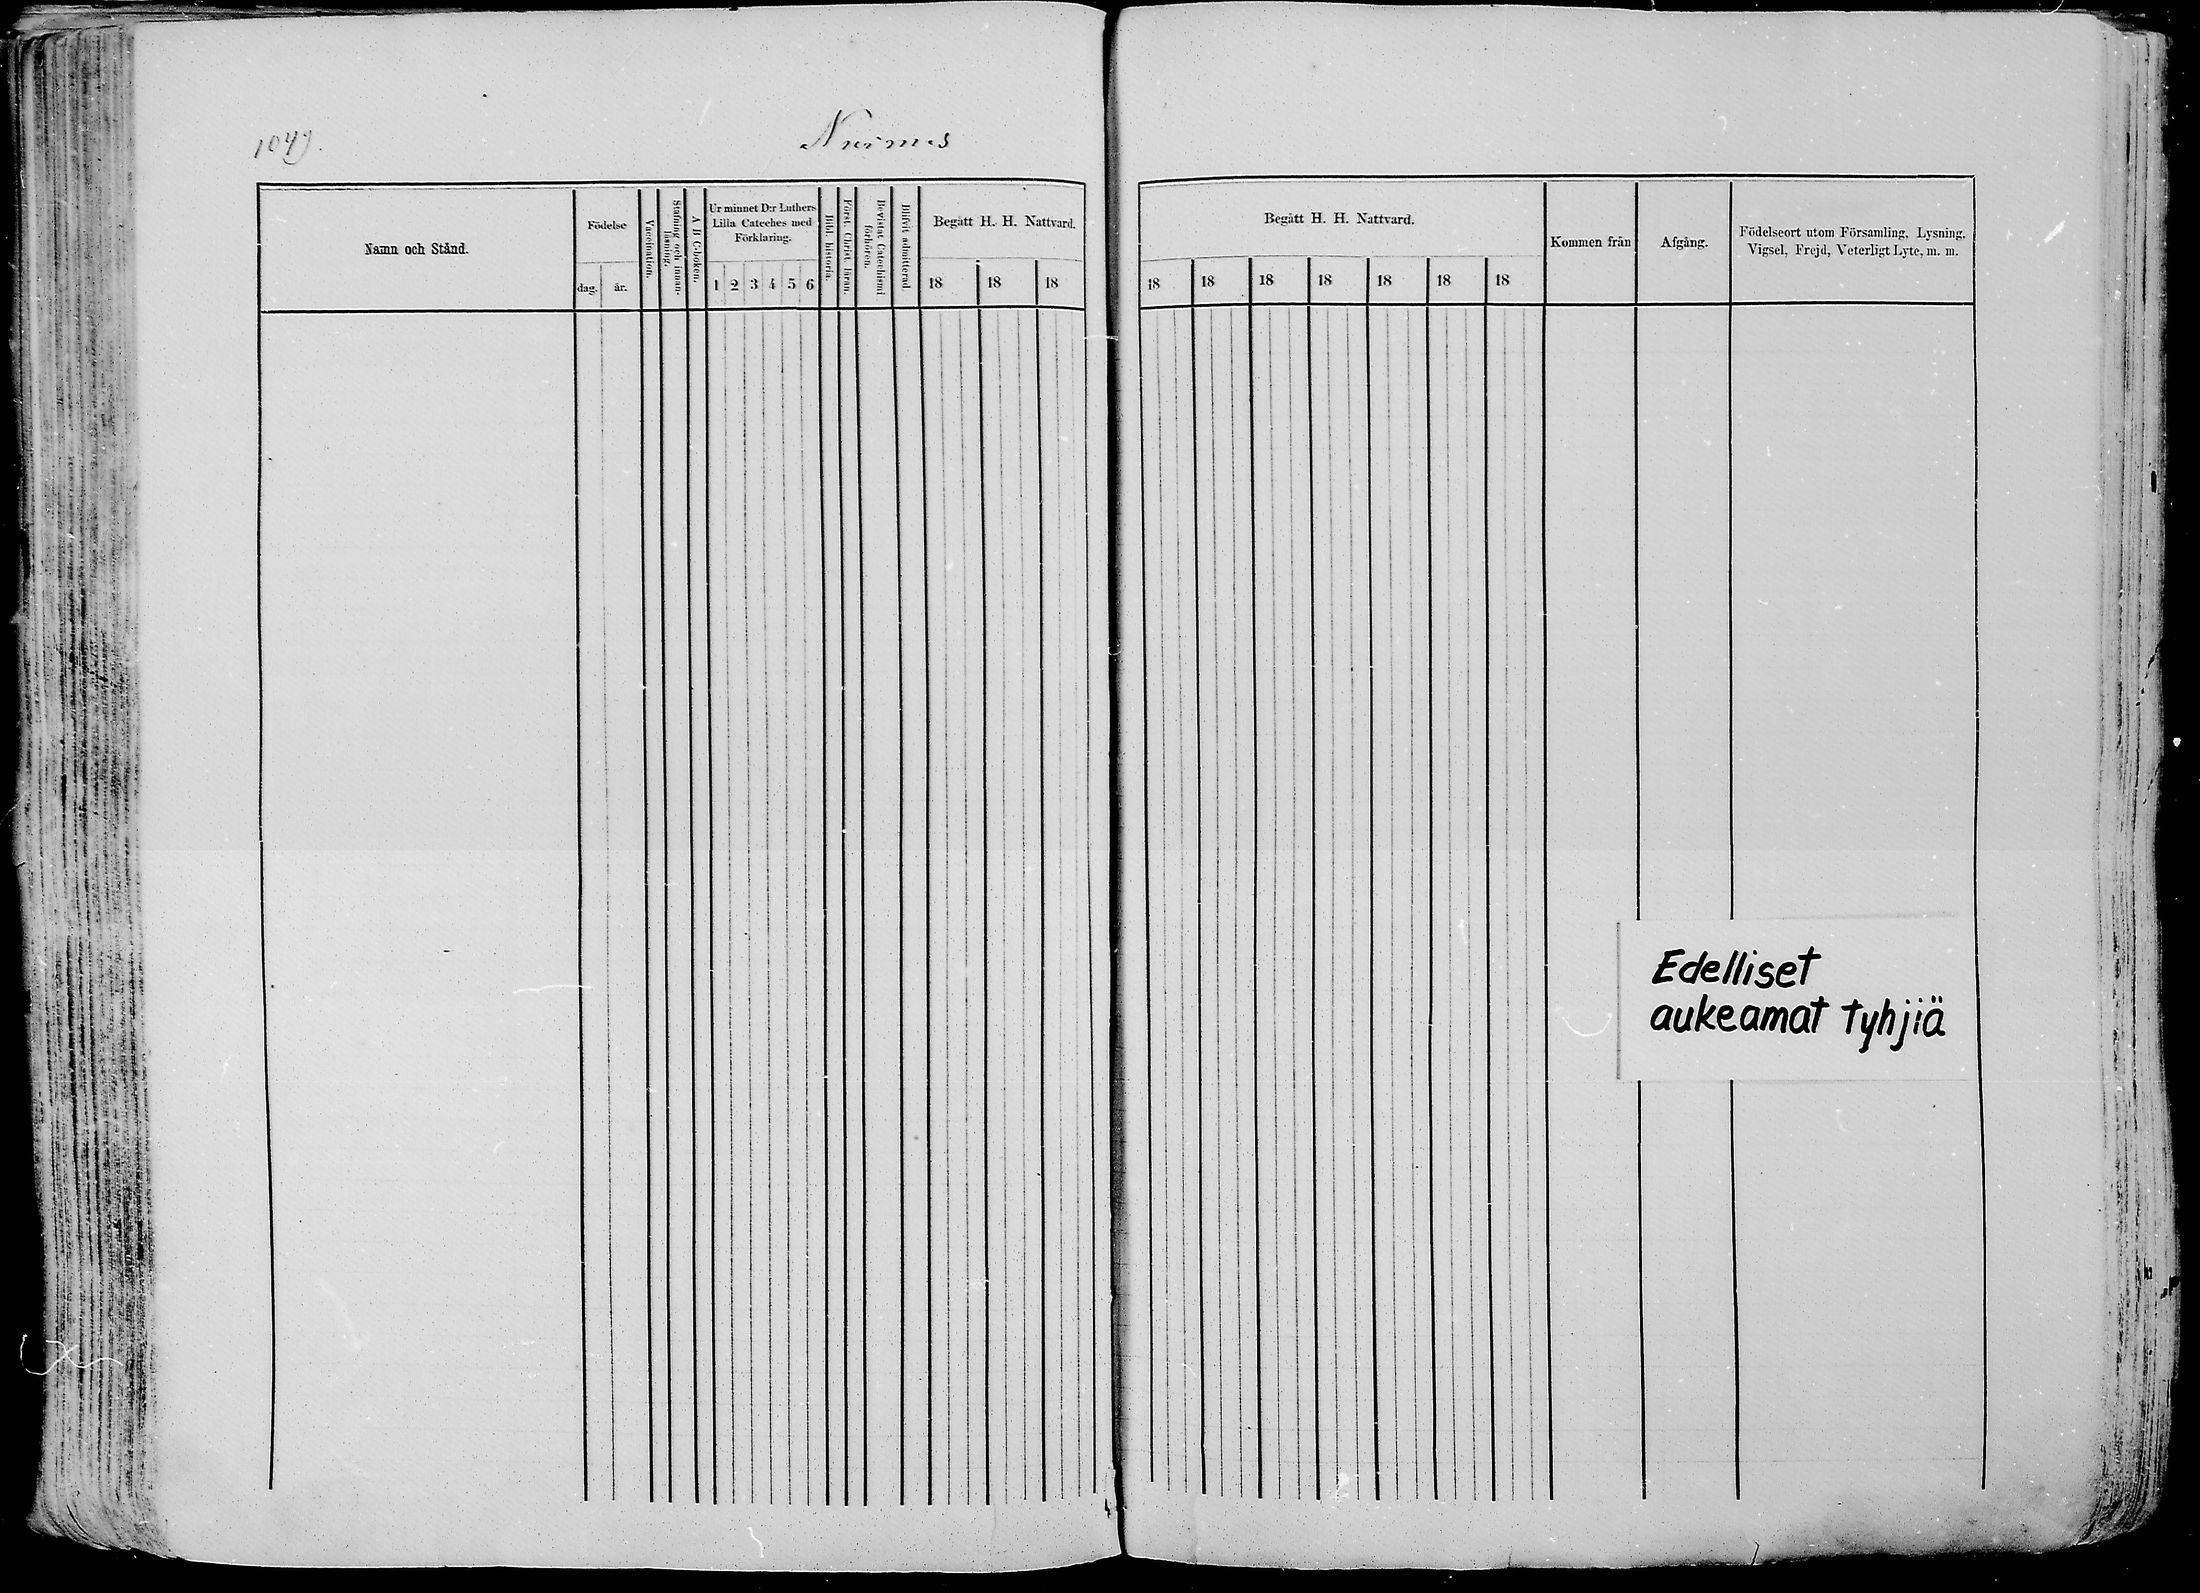 1049.
Nurmes
Namn och Stånd.
Födelse
dag.
år.
Vaccination.
Stafning och innan-
läsning.
A B C-boken.
Ur minnet D:r Luthers
Lilla Cateches med
Förklaring.
1 2 3 4 5 6
Bibl. historia.
Först. Christ. läran.
Bevistat Catechismi
förhören.
Blifvit admitterad
Begått H. H. Nattvard.
18 18 18
Begått H. H. Nattvard.
18 18 18 18 18 18 18
Kommen från
Afgång.
Födelseort utom Församling, Lysning,
Vigsel, Frejd, Veterligt Lyte, m. m.
Edelliset
aukeamat tyhjiä